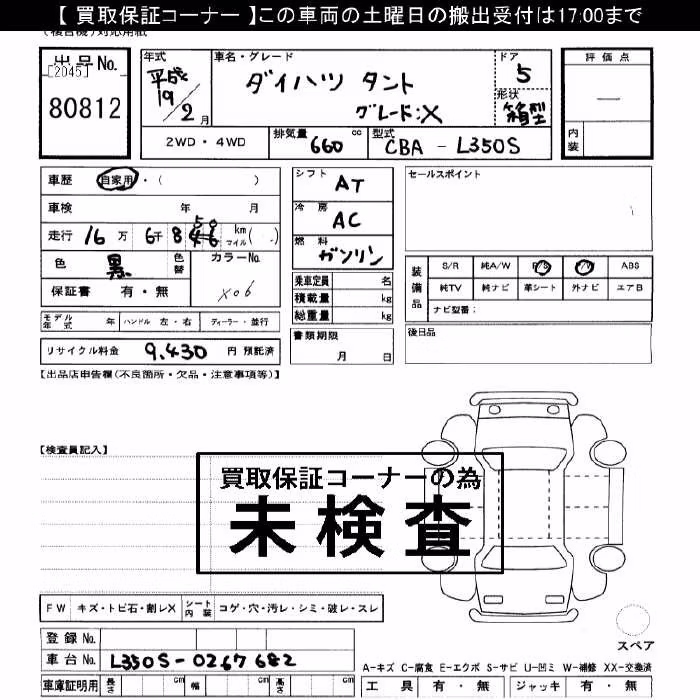 【 買取保証コーナー 】この車両の土曜日の搬出受付は17:00まで
出品No.
[2045]
80812
年式
平成
19
2月
車名・グレード
ダイハツ タント
グレード:X
ドア
5
形状
箱型
評価点
—
内装
2WD・4WD
排気量
660 cc
型式
CBA - L350S
車歴 自家用・( )
車検 年 月
走行 16万 6千8 km
マイル ( . )
色 黒 色替
カラーNo.
X06
保証書 有・無
モデル年式 年 ハンドル 左・右 ディーラー・並行
リサイクル料金 9,430 円 預託済
シフト AT
冷房 AC
燃料 ガソリン
乗車定員 名
積載量 kg
総重量 kg
書類期限
月 日
セールスポイント
装備品
S/R 純A/W P/S P/W ABS
純TV 純ナビ 革シート 外ナビ エアB
ナビ型番:
後日品
【出品店申告欄(不良箇所・欠品・注意事項等)】
【検査員記入】
買取保証コーナーの為
未検査
FW キズ・トビ石・割レX シート内装 コゲ・穴・汚レ・シミ・破レ・スレ
登録No.
車台No. L350S-0267682
車庫証明用 長さ cm 幅 cm 高さ cm
スペア
A-キズ C-腐食 E-エクボ S-サビ U-凹ミ W-補修 XX-交換済
工具 有・無 ジャッキ 有・無